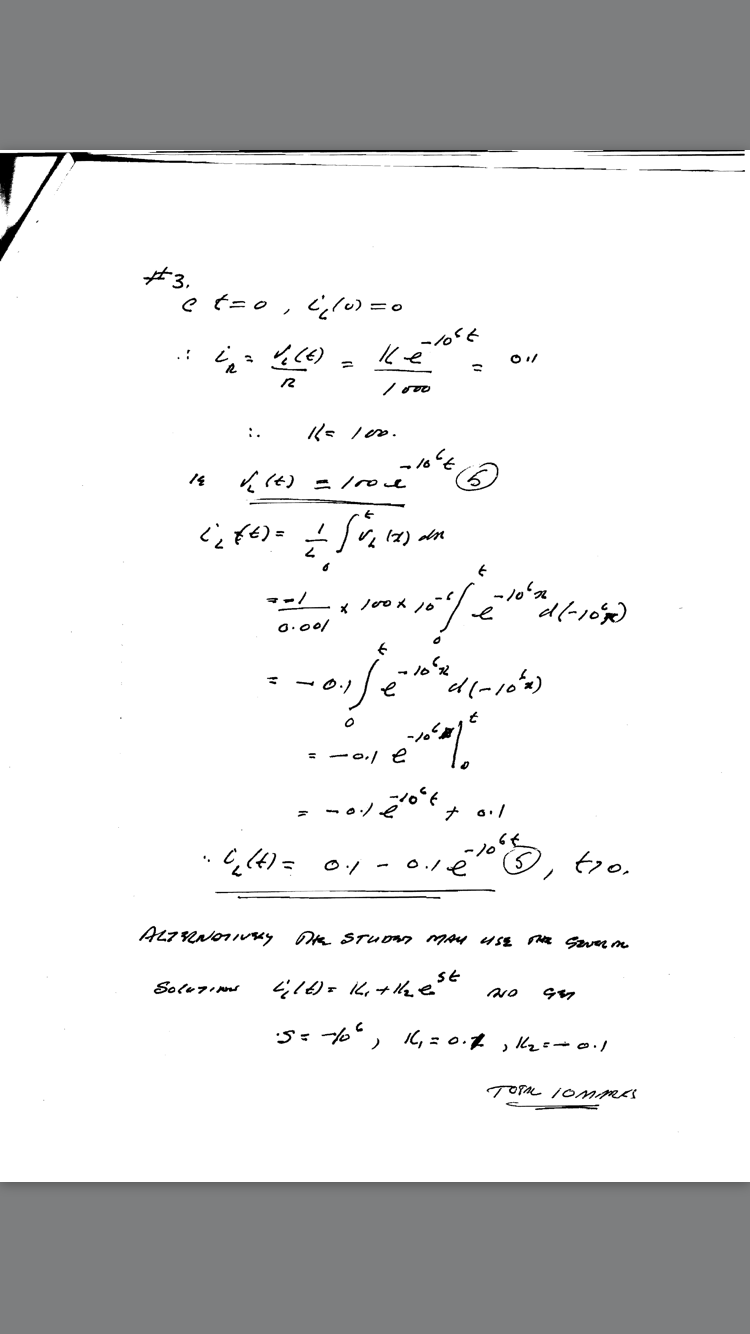 #3.
@ t=0, i_L(0)=0
∴ i_R = v_L(t)/R = K e^{-10^6 t}/1000 = 0.1
∴ K= 100.
ie v_L(t) = 100 e^{-10^6 t} (5)
i_L(t)= 1/L ∫_0^t v_L(x) dx
= -1/0.001 × 100 × 10^{-6} ∫_0^t e^{-10^6 x} d(-10^6 x)
= - 0.1 ∫_0^t e^{-10^6 x} d(-10^6 x)
= -0.1 e^{-10^6 x} |_0^t
= -0.1 e^{-10^6 t} + 0.1
∴ i_L(t)= 0.1 - 0.1 e^{-10^6 t} (5), t>0.
ALTERNATIVELY THE STUDENT MAY USE THE GENERAL
SOLUTION i_L(t)= K_1 + K_2 e^{st} GET
s= -10^6, K_1 = 0.1, K_2 = -0.1
TOTAL 10 MARKS